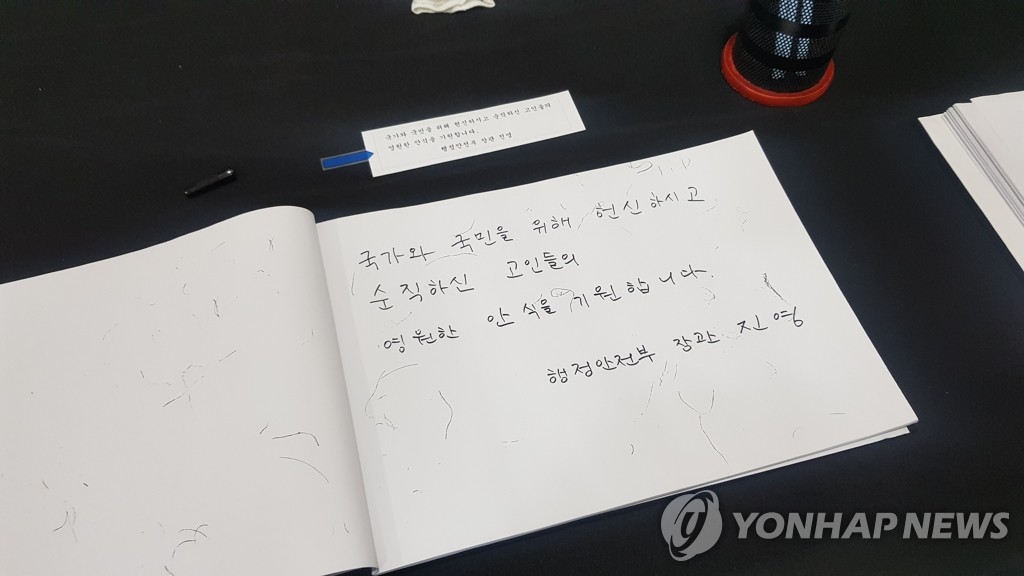 국가와 국민을 위해 헌신하시고 순직하신 고인들의
영원한 안식을 기원합니다.
행정안전부 장관 진영
국가와 국민을 위해 헌신하시고
순직하신 고인들의
영원한 안식을 기원합니다.
행정안전부 장관 진영
YONHAP NEWS